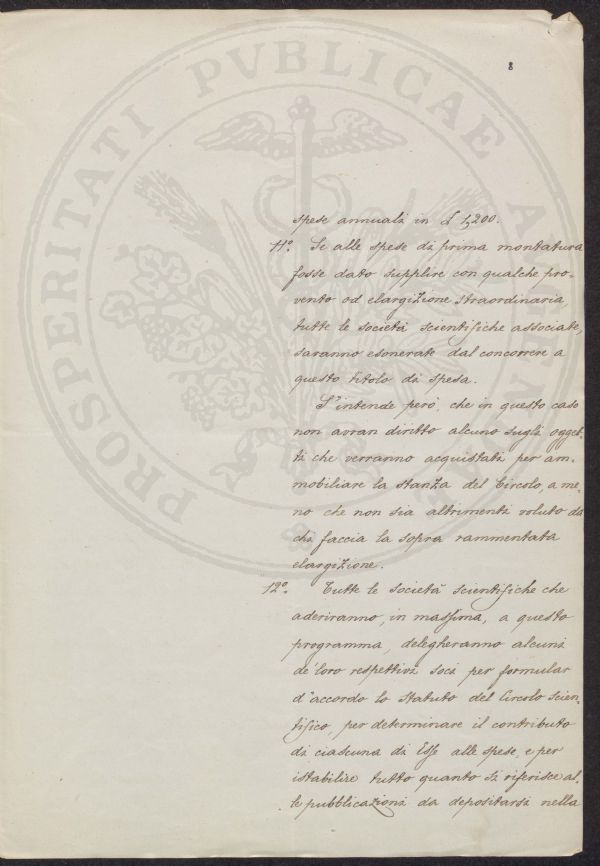 8
PROSPERITATI PVBLICAE AVGENDAE
spese annuali in £ 1,200.
11º. Se alle spese di prima montatura
fosse dato supplire con qualche pro-
vento od elargizione straordinaria,
tutte le società scientifiche associate,
saranno esonerate dal concorrere a
questo titolo di spesa.
S'intende però, che in questo caso
non avran diritto alcuno sugli ogget-
ti che verranno acquistati per am-
mobiliare la stanza del Circolo, a me-
no che non sia altrimenti voluto da
chi faccia la sopra rammentata
elargizione.
12º. Tutte le società scientifiche che
aderiranno, in massima, a questo
programma, delegheranno alcuni
de' loro respettivi soci per formular
d'accordo lo statuto del Circolo scien-
tifico, per determinare il contributo
di ciascuna di Esse alle spese, e per
istabilire tutto quanto si riferisce al-
le pubblicazioni da depositarsi nella